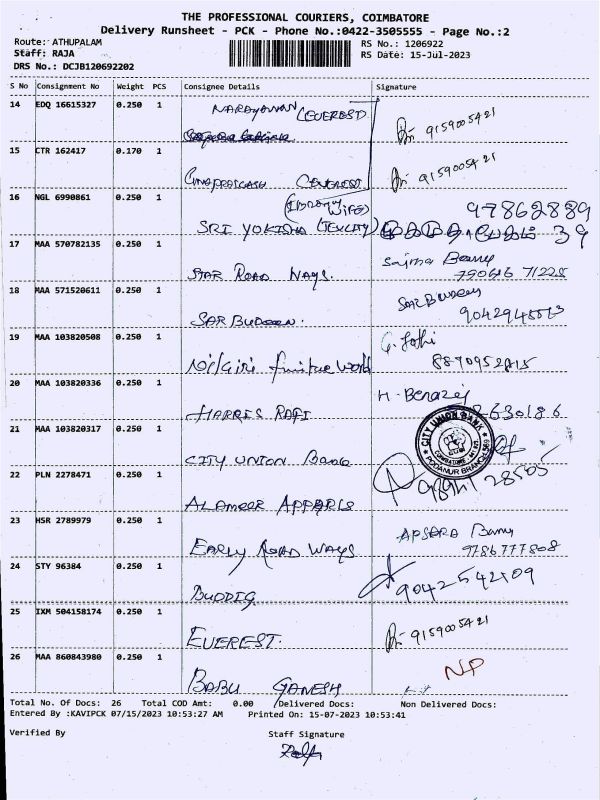 THE PROFESSIONAL COURIERS, COIMBATORE
Delivery Runsheet - PCK - Phone No.:0422-3505555 - Page No.:2
Route: ATHUPALAM RS No.: 1206922
Staff: RAJA RS Date: 15-Jul-2023
DRS No.: DCJB120692202
S No Consignment No Weight PCS Consignee Details Signature
14 EDQ 16615327 0.250 1 (EVEREST) 9159005421
15 CTR 162417 0.170 1 9159005421
16 NGL 6990861 0.250 1 SRI 97862889
39
17 MAA 570782135 0.250 1 STAR ROAD WAYS.
18 MAA 571520611 0.250 1 SARBUDEEN.
19 MAA 103820508 0.250 1 Nilgiri furniture World 8890952815
20 MAA 103820336 0.250 1 HARRIS RAFI
21 MAA 103820317 0.250 1 CITY UNION BANK
CITY UNION BANK
PODANUR BRANCH
22 PLN 2278471 0.250 1 ALAMEER APPARLS
23 HSR 2789979 0.250 1 EARLY ROAD WAYS APSARA Banu
9786777808
24 STY 96384 0.250 1 9042542109
25 IXM 504158174 0.250 1 EVEREST. 9159005421
26 MAA 860843980 0.250 1 BABU GANESH NP
Total No. Of Docs: 26 Total COD Amt: 0.00 Delivered Docs: Non Delivered Docs:
Entered By :KAVIPCK 07/15/2023 10:53:27 AM Printed On: 15-07-2023 10:53:41
Verified By Staff Signature